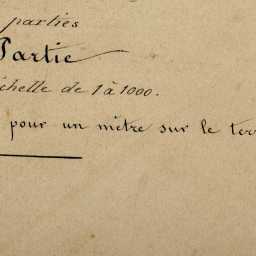 parties
Partie
échelle de 1 à 1000.
pour un mètre sur le